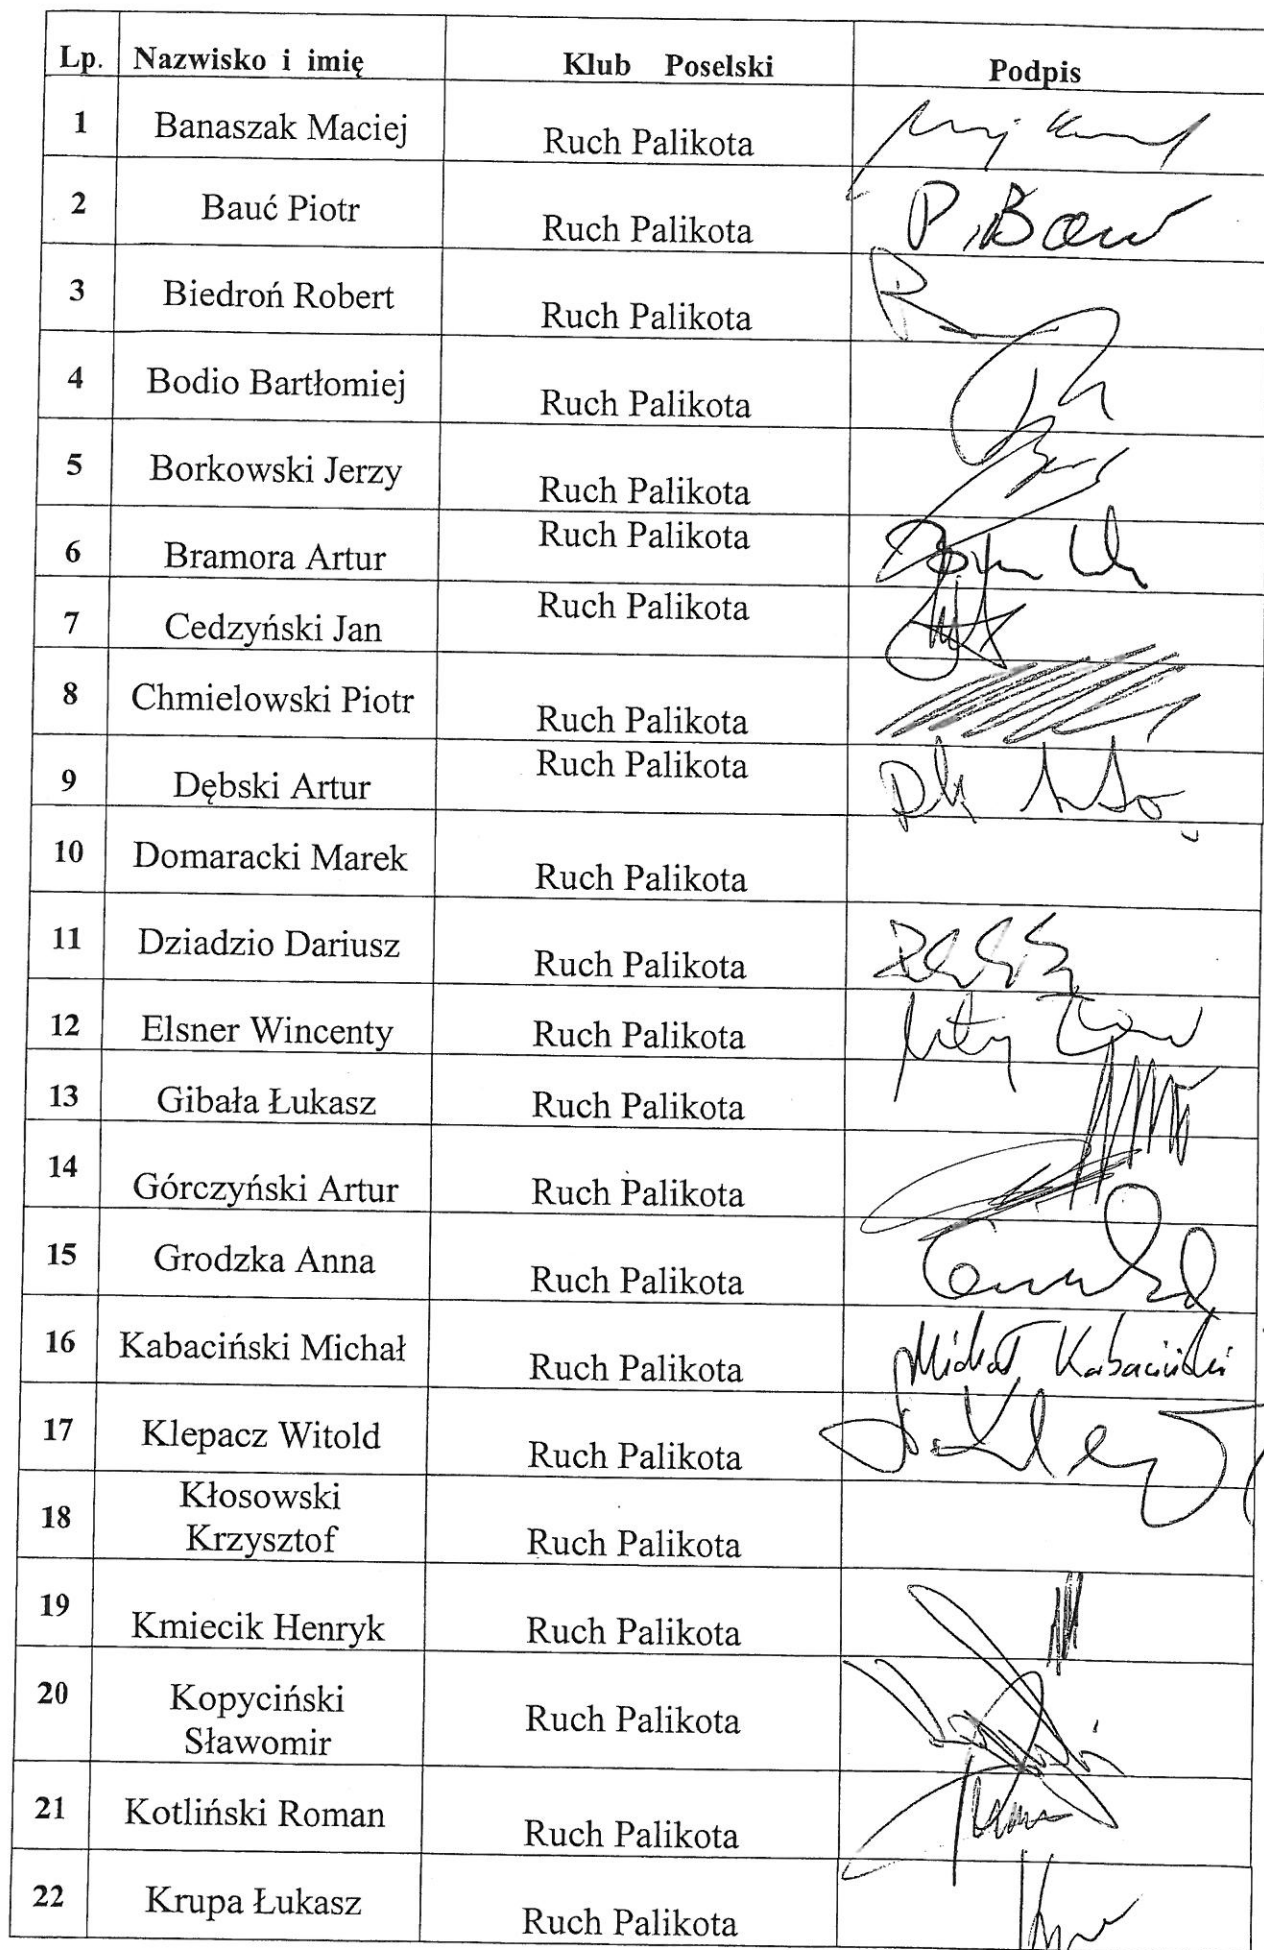 Lp. Nazwisko i imię Klub Poselski Podpis
1 Banaszak Maciej Ruch Palikota
2 Bauć Piotr Ruch Palikota P. Bauć
3 Biedroń Robert Ruch Palikota
4 Bodio Bartłomiej Ruch Palikota
5 Borkowski Jerzy Ruch Palikota
6 Bramora Artur Ruch Palikota
7 Cedzyński Jan Ruch Palikota
8 Chmielowski Piotr Ruch Palikota
9 Dębski Artur Ruch Palikota
10 Domaracki Marek Ruch Palikota
11 Dziadzio Dariusz Ruch Palikota
12 Elsner Wincenty Ruch Palikota
13 Gibała Łukasz Ruch Palikota
14 Górczyński Artur Ruch Palikota
15 Grodzka Anna Ruch Palikota
16 Kabaciński Michał Ruch Palikota Michał Kabaciński
17 Klepacz Witold Ruch Palikota
18 Kłosowski
Krzysztof Ruch Palikota
19 Kmiecik Henryk Ruch Palikota
20 Kopyciński
Sławomir Ruch Palikota
21 Kotliński Roman Ruch Palikota
22 Krupa Łukasz Ruch Palikota